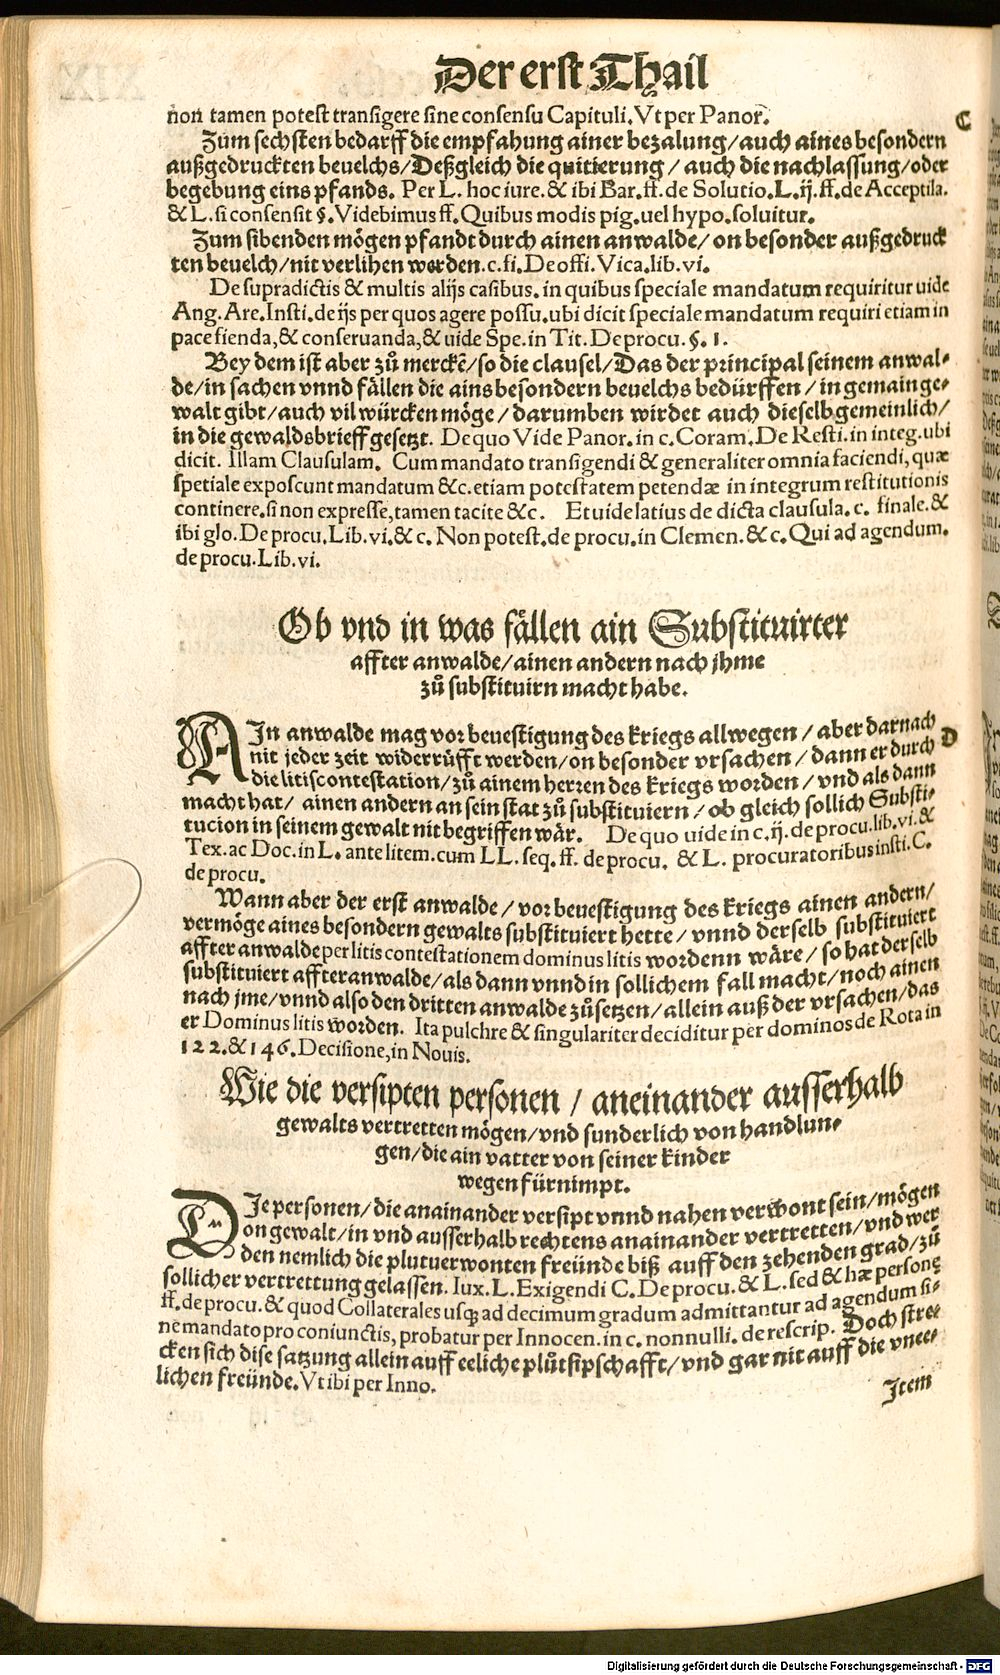 Der erst Thail
non tamen potest transigere sine consensu Capituli. Vt per Panor̃.
C
Zum sechsten bedarff die empfahung ainer bezalung / auch aines besondern
außgedruckten beuelchs / Deßgleich die quitierung / auch die nachlassung / oder
begebung eins pfands. Per L. hoc iure. & ibi Bar. ff. de Solutio. L. ij. ff. de Acceptila.
& L. si consensit §. Videbimus ff. Quibus modis pig. uel hypo. soluitur.
Zum sibenden mögen pfandt durch ainen anwalde / on besonder außgedruck
ten beuelch / nit verlihen werden. c. fi. De offi. Vica. lib. vi.
De supradictis & multis alijs casibus. in quibus speciale mandatum requiritur uide
Ang. Are. Insti. de ijs per quos agere possu. ubi dicit speciale mandatum requiri etiam in
pace fienda, & conseruanda, & uide Spe. in Tit. De procu. §. 1.
Bey dem ist aber zů merckē / so die clausel / Das der principal seinem anwal-
de / in sachen vnnd fällen die ains besondern beuelchs bedürffen / in gemain ge-
walt gibt / auch vil würcken möge / darumben wirdet auch dieselb gemeinlich /
in die gewaldsbrieff gesetzt. De quo Vide Panor. in c. Coram. De Resti. in integ. ubi
dicit. Illam Clausulam. Cum mandato transigendi & generaliter omnia faciendi, quæ
spetiale exposcunt mandatum &c. etiam potestatem petendæ in integrum restitutionis
continere. si non expresse, tamen tacite &c. Et uide latius de dicta clausula. c. finale. &
ibi glo. De procu. Lib. vi. & c. Non potest. de procu. in Clemen. & c. Qui ad agendum.
de procu. Lib. vi.
Ob vnd in was fällen ain Substituirter
affter anwalde / ainen andern nach jhme
zů substituirn macht habe.
AIn anwalde mag vor beuestigung des kriegs allwegen / aber darnach
D
nit jeder zeit widerrüfft werden / on besonder vrsachen / dann er durch
die litiscontestation / zů ainem herren des kriegs worden / vnd als dann
macht hat / ainen andern an sein stat zů substituiern / ob gleich sollich Substi-
tucion in seinem gewalt nit begriffen wär. De quo uide in c. ij. de procu. lib. vi. &
Tex. ac Doc. in L. ante litem. cum LL. seq. ff. de procu. & L. procuratoribus insti. C.
de procu.
Wann aber der erst anwalde / vor beuestigung des kriegs ainen andern /
vermöge aines besondern gewalts substituiert hette / vnnd derselb substituiert
affter anwalde per litis contestationem dominus litis wordenn wäre / so hat derselb
substituiert affteranwalde / als dann vnnd in sollichem fall macht / noch ainen
nach jme / vnnd also den dritten anwalde zůsetzen / allein auß der vrsachen / das
er Dominus litis worden. Ita pulchre & singulariter deciditur per dominos de Rota in
122. & 146. Decisione, in Nouis.
Wie die versipten personen / aneinander ausserhalb
gewalts vertretten mögen / vnd sunderlich von handlun-
gen / die ain vatter von seiner kinder
wegen fürnimpt.
DJe personen / die anainander versipt vnnd nahen verwont sein / mögen
on gewalt / in vnd ausserhalb rechtens anainander vertretten / vnd wer
den nemlich die plutuerwonten freünde biß auff den zehenden grad / zů
sollicher vertrettung gelassen. Iux. L. Exigendi C. De procu. & L. sed & hæ personę
ff. de procu. & quod Collaterales usq; ad decimum gradum admittantur ad agendum si-
ne mandato pro coniunctis, probatur per Innocen. in c. nonnulli. de rescrip. Doch stre-
cken sich dise satzung allein auff eeliche plůtsipschafft / vnd gar nit auff die vnee-
lichen freünde. Vt ibi per Inno.
Item
Digitalisierung gefördert durch die Deutsche Forschungsgemeinschaft - DFG